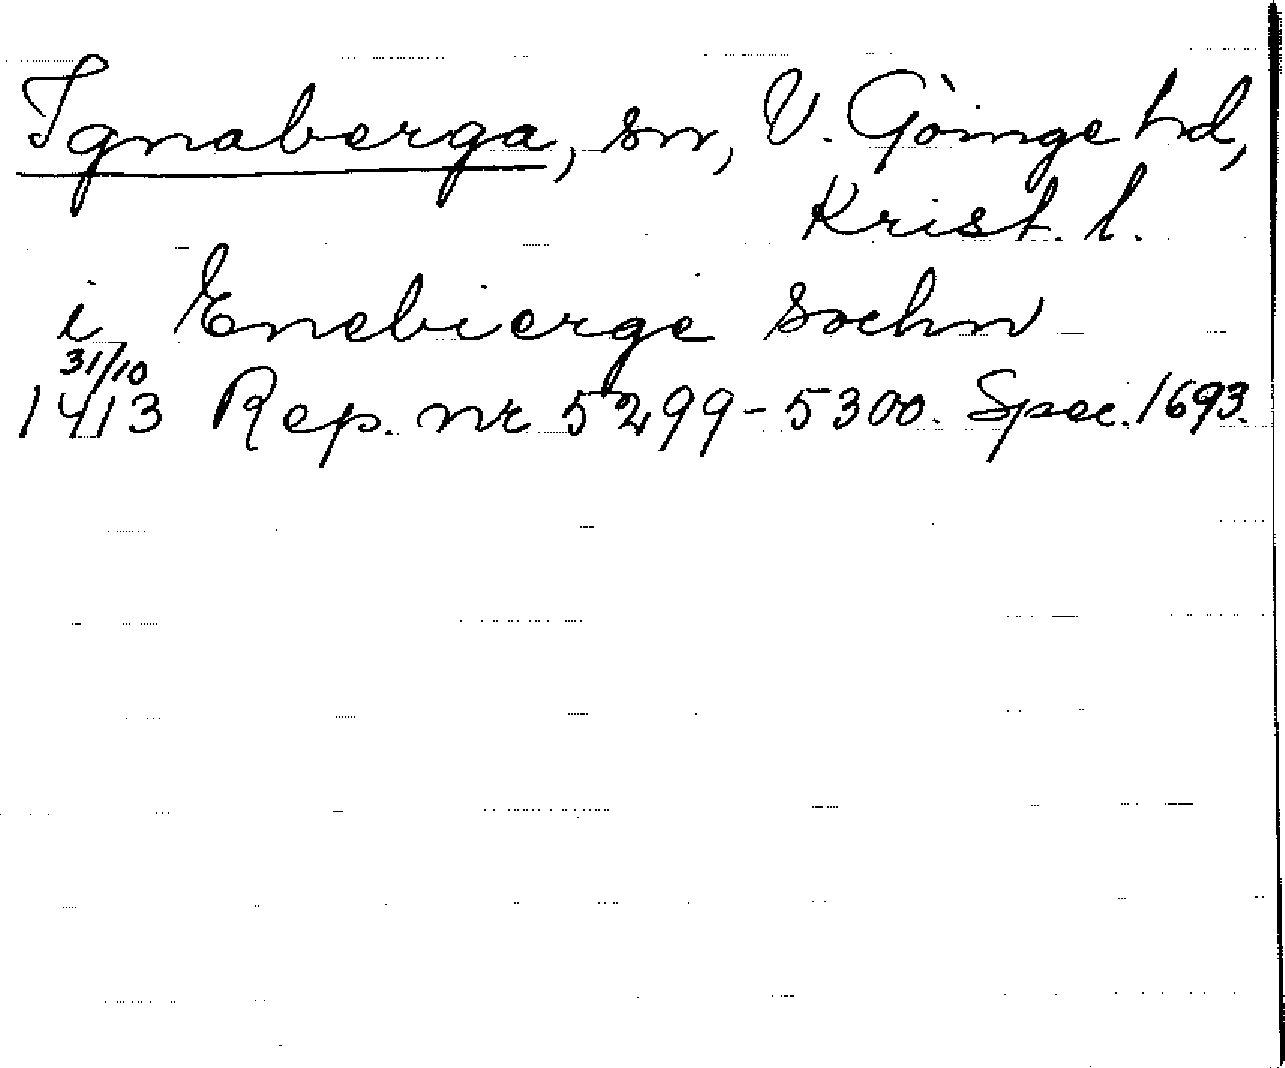 Ignaberga, sn, V. Göinge hd,
Krist. l.
i Enebierge soehn
31/10
1413 Rep. nr 5299-5300. Spec. 1693.